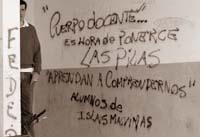 "CUERPO DOCENTE..."
ES HORA DE PONERCE
LAS PILAS
"APRENDAN A COMPRENDERNOS"
ALUMNOS de
ISLAS MALVINAS